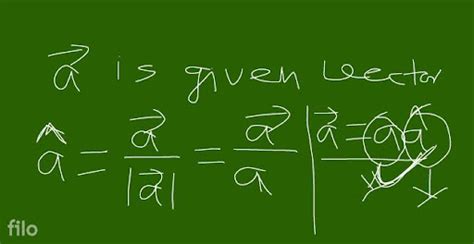 a⃗ is given vector
â = a⃗ / |a⃗| = a⃗ / a | a⃗ = aâ
filo